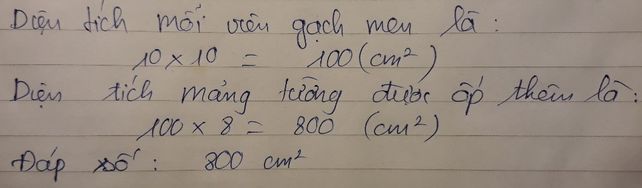 Diện tích mỗi viên gạch men là :
10 x 10 = 100 (cm²)
Diện tích mảng tường được ốp thêm là :
100 x 8 = 800 (cm²)
Đáp số : 800 cm²